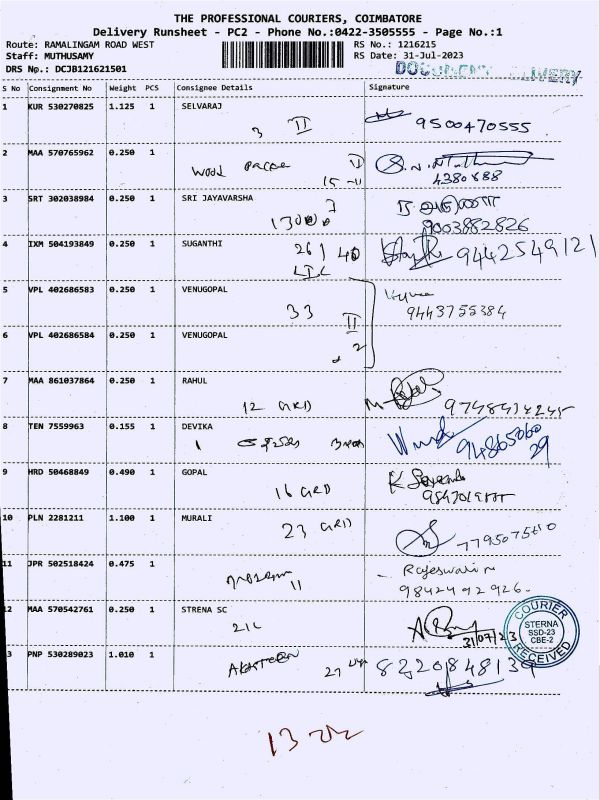 THE PROFESSIONAL COURIERS, COIMBATORE
Delivery Runsheet - PC2 - Phone No.:0422-3505555 - Page No.:1
Route: RAMALINGAM ROAD WEST
Staff: MUTHUSAMY
DRS No.: DCJB121621501
RS No.: 1216215
RS Date: 31-Jul-2023
S No Consignment No Weight PCS Consignee Details Signature
1 KUR 530270825 1.125 1 SELVARAJ
3 II 9500470555
2 MAA 570765962 0.250 1
4380888
3 SRT 302038984 0.250 1 SRI JAYAVARSHA
9003882826
4 IXM 504193849 0.250 1 SUGANTHI
9442549121
5 VPL 402686583 0.250 1 VENUGOPAL
33 II 9443755384
6 VPL 402686584 0.250 1 VENUGOPAL
7 MAA 861037864 0.250 1 RAHUL
12 GRD
8 TEN 7559963 0.155 1 DEVIKA
1 9486506029
9 HRD 50468849 0.490 1 GOPAL
16 GRD
10 PLN 2281211 1.100 1 MURALI
23 GRD
11 JPR 502518424 0.475 1
Rajeswari
9842492926
12 MAA 570542761 0.250 1 STRENA SC
31/07/23
COURIER
STERNA
SSD-23
CBE-2
RECEIVED
13 PNP 530289023 1.010 1
27 8220848139